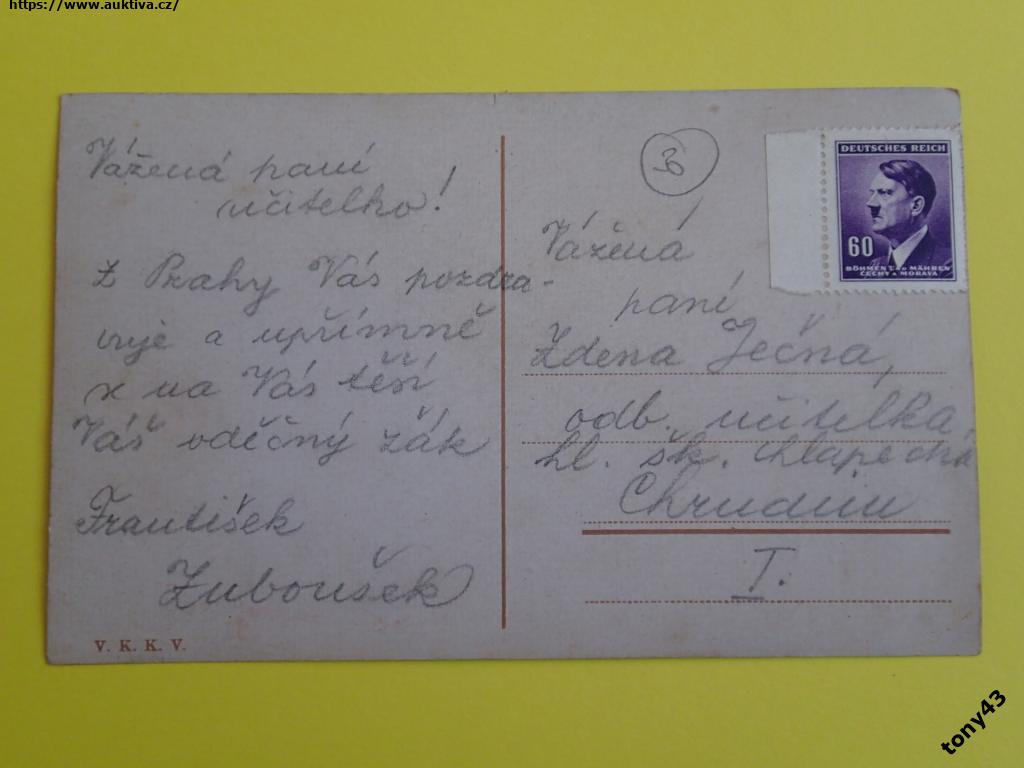 https://www.auktiva.cz/
Vážená paní
učitelko!
Z Prahy Vás pozdra-
vuje a upřímně
x na Vás těší
Váš vděčný žák
František
Zuboušek
V. K. K. V.
36
DEUTSCHES REICH
60
BÖHMEN U. MÄHREN
ČECHY A MORAVA
Vážená
paní
Zdena Ječná,
odb. učitelka,
hl. šk. chlapecká
Chrudim
I.
tony43